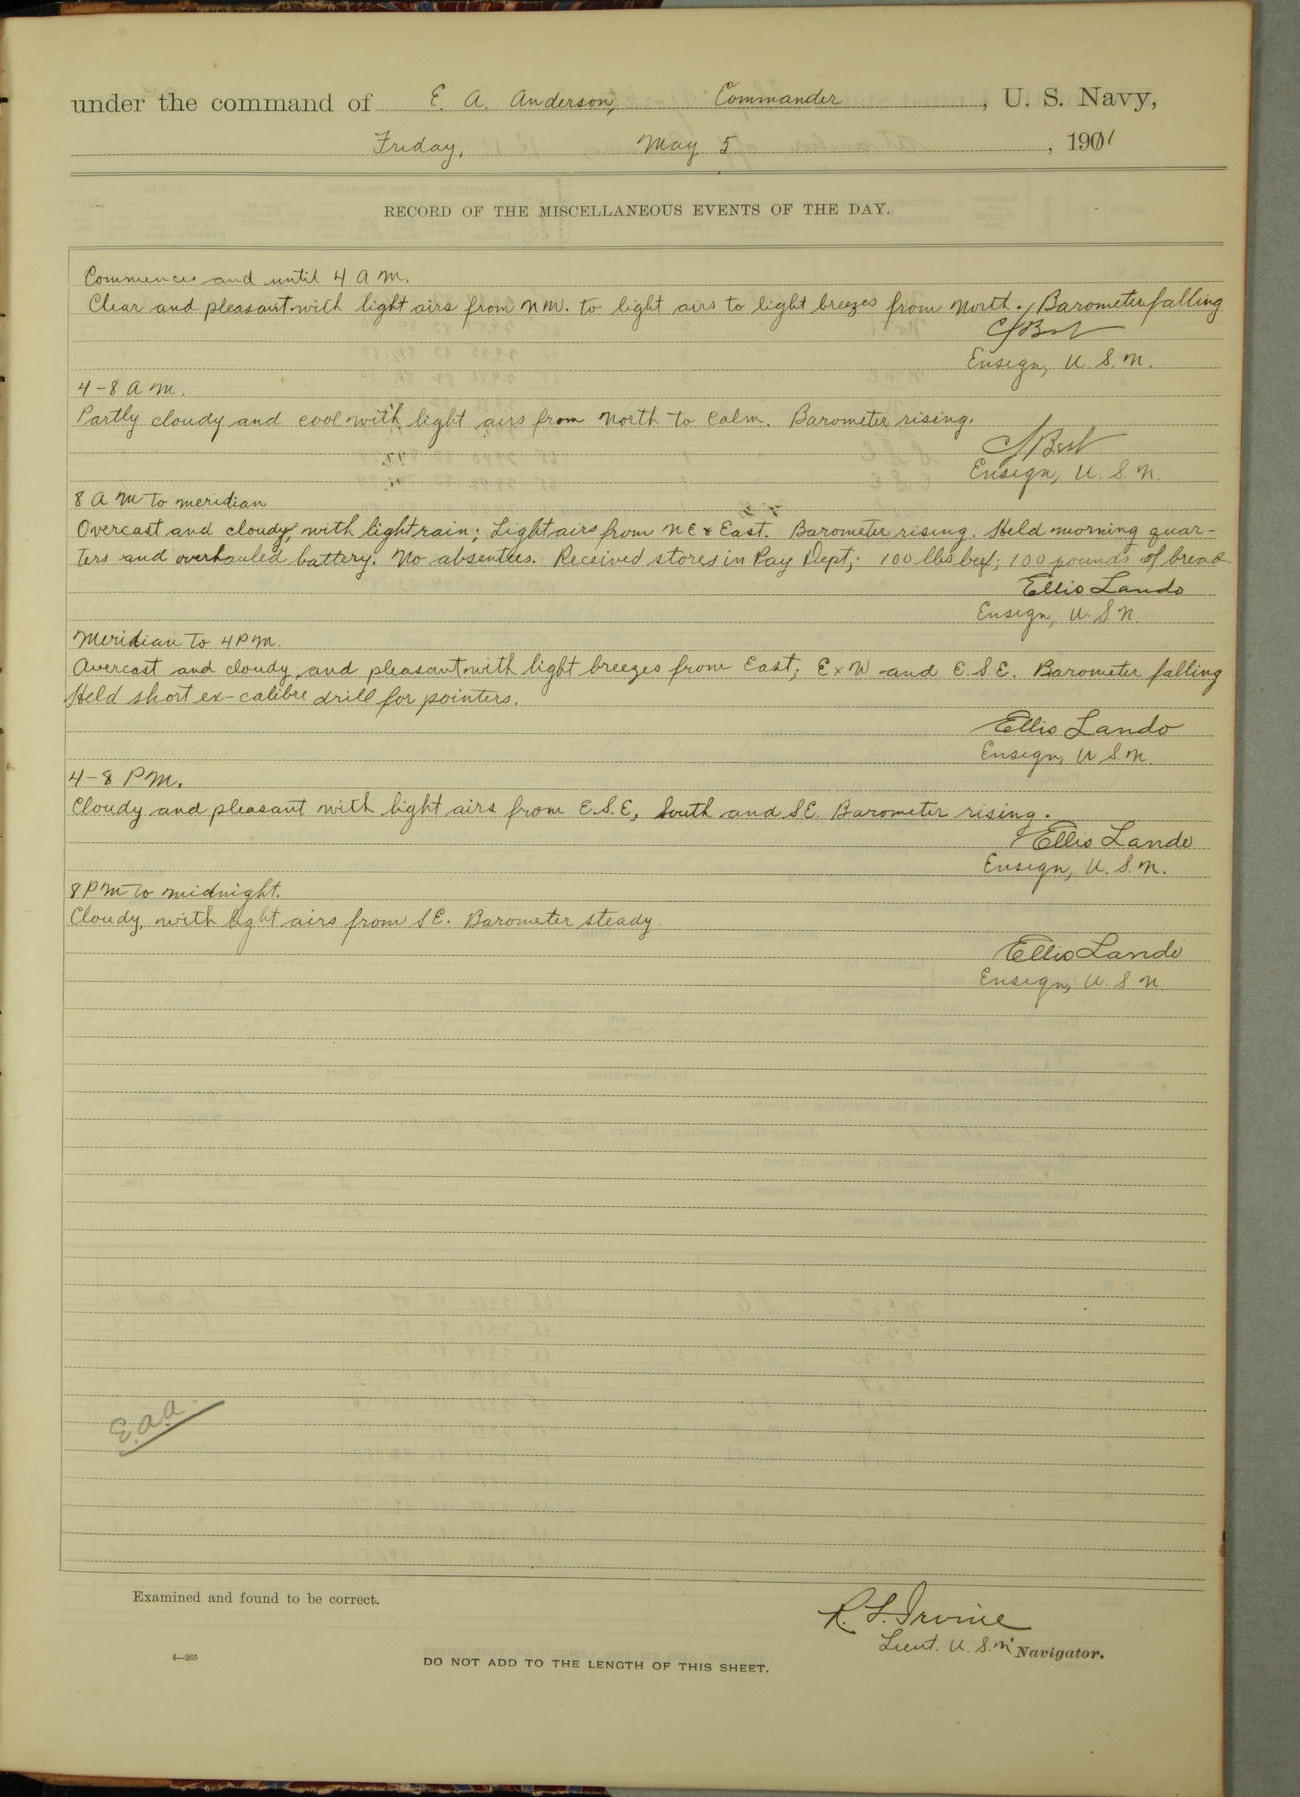 under the command of E. A. Anderson, Commander, U. S. Navy,
Friday, May 5, 1901
RECORD OF THE MISCELLANEOUS EVENTS OF THE DAY.
Commences and until 4 A M.
Clear and pleasant with light airs from NW. to light airs to light breezes from North. Barometer falling
C Best
Ensign, U. S. N.
4-8 A M.
Partly cloudy and cool with light airs from North to Calm. Barometer rising.
C Best
Ensign, U. S. N.
8 A M to meridian
Overcast and cloudy, with light rain; Light airs from NE & East. Barometer rising. Held morning quar-
ters and overhauled battery. No absentees. Received stores in Pay Dept; 100 lbs beef; 100 pounds of bread.
Ellis Lando
Ensign, U. S. N.
Meridian to 4 P M.
Overcast and cloudy, and pleasant with light breezes from East; E x N and E.S.E. Barometer falling
Held short ex-calibre drill for pointers.
Ellis Lando
Ensign, U S N.
4-8 P M.
Cloudy and pleasant with light airs from E.S.E, South and SE. Barometer rising.
Ellis Lando
Ensign, U. S. N.
8 P M to midnight.
Cloudy, with light airs from SE. Barometer steady.
Ellis Lando
Ensign, U. S N.
E.A.A.
Examined and found to be correct.
R. L. Irvine
Lieut. U. S. N. Navigator.
4—265
DO NOT ADD TO THE LENGTH OF THIS SHEET.